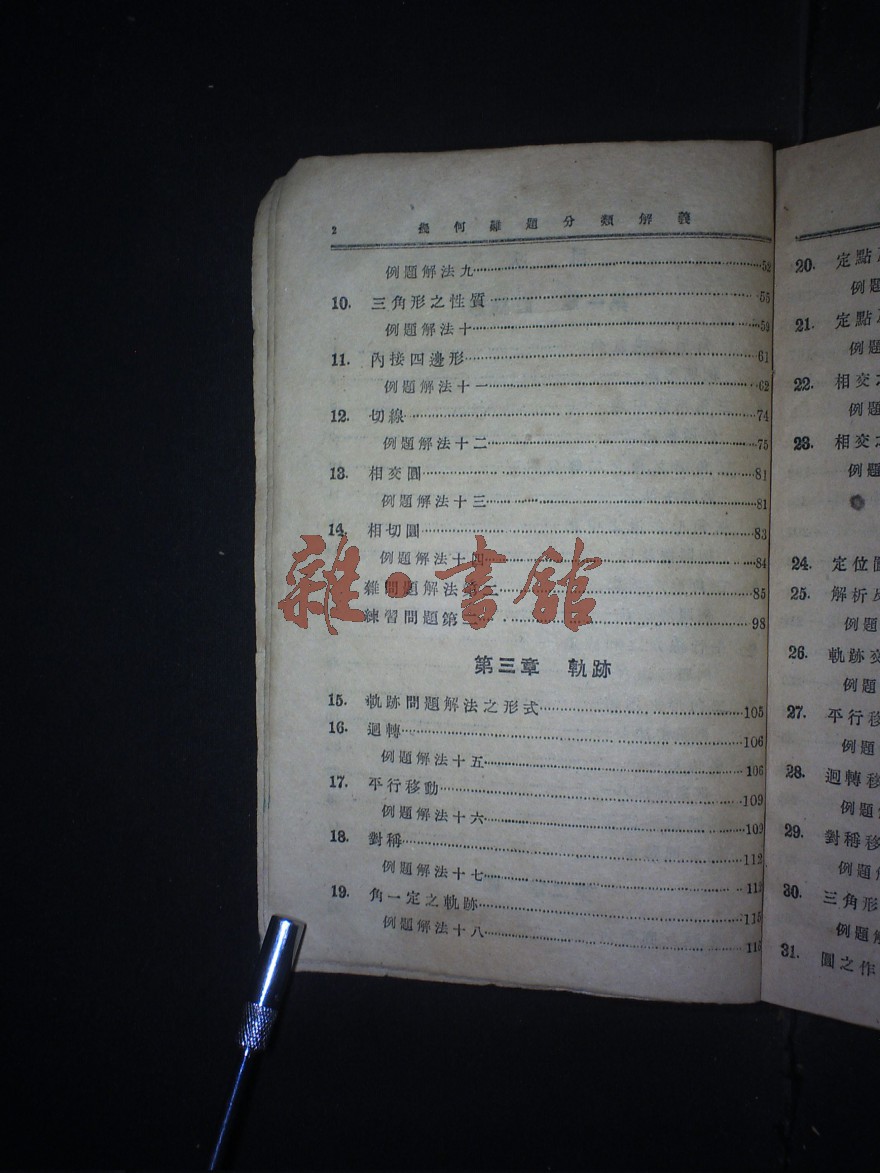 2 幾何難題分類解義
例題解法九 52
10. 三角形之性質 55
例題解法十 59
11. 內接四邊形 61
例題解法十一 62
12. 切線 74
例題解法十二 75
13. 相交圓 81
例題解法十三 81
14. 相切圓 83
例題解法十四 84
雜問題解法第二 85
練習問題第二 98
第三章 軌跡
15. 軌跡問題解法之形式 105
16. 迴轉 106
例題解法十五 106
17. 平行移動 109
例題解法十六 109
18. 對稱 112
例題解法十七 112
19. 角一定之軌跡 115
例題解法十八 115
雜·書館
20. 定點
例題
21. 定點
例題
22. 相交之
例題
23. 相交之
例題
24. 定位圖
25. 解析及
例題
26. 軌跡交
例題
27. 平行移
例題
28. 迴轉移
例題
29. 對稱移
例題
30. 三角形
例題解
31. 圓之作